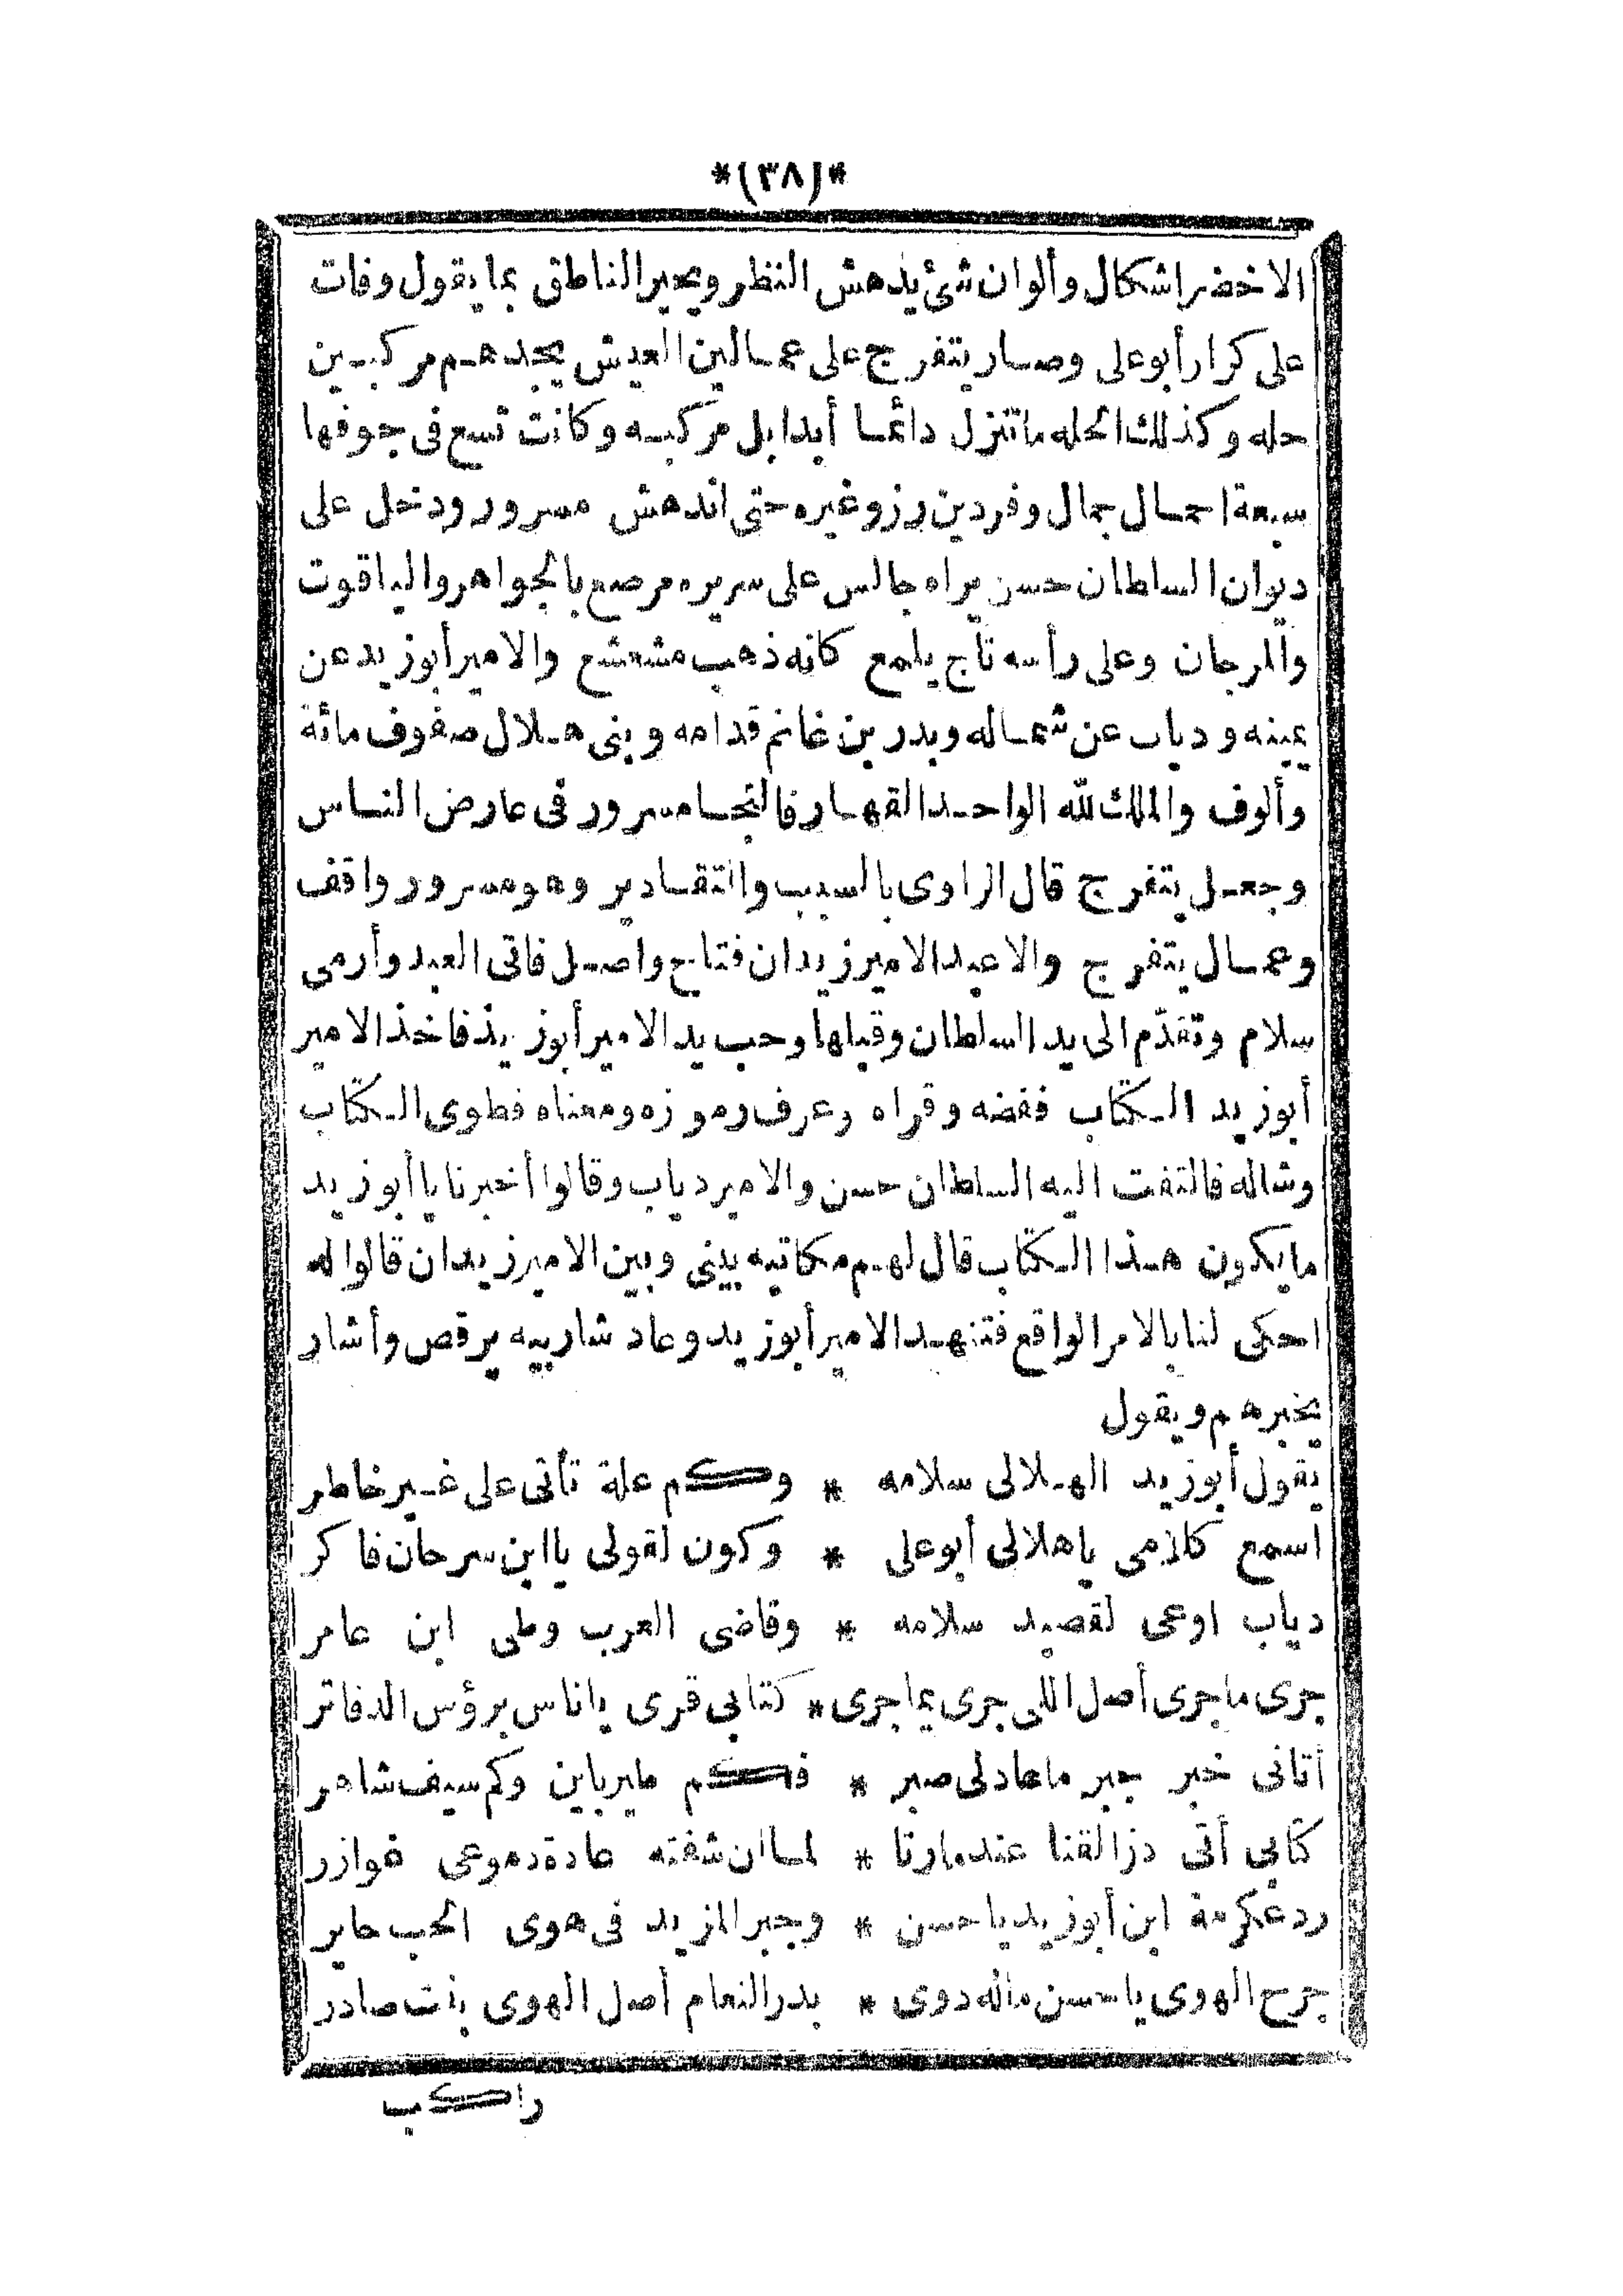 *(٣٨)*
الاخضر اشكال وألوان شئ يدهش النظر ويحير الناطق بما يقول وفات
على كرار أبو على وصار يتفرج على عمالين العيش يجدهم مركبين
حله وكذلك الحله ما تنزل دائما أبدا بل مركبه وكانت تسع فى جوفها
سبعة احمال جمال وفردين رز وغيره حتى اندهش مسرور ودخل على
ديوان السلطان حسن يراه جالس على سريره مرصع بالجواهر والياقوت
والمرجان وعلى رأسه تاج يلمع كانه ذهب مشعشع والامير أبوزيد عن
يمينه ودياب عن شماله وبدر بن غانم قدامه وبنى هلال صفوف مائة
وألوف والملك لله الواحد القهار فالتجا مسرور فى عارض الناس
وجعل يتفرج قال الراوى بالسبب والتقادير وهو مسرور واقف
وعمال يتفرج والا عبد الامير زيدان فتاح واصل فاتى العبد وأرمى
سلام وتقدّم الى يد السلطان وقبلها وحب يد الامير أبوزيد فاخذ الامير
أبوزيد الكتاب ففضه وقراه وعرف رموزه ومعناه فطوى الكتاب
وشاله فالتفت اليه السلطان حسن والامير دياب وقالوا أخبرنا يا أبوزيد
ما يكون هذا الكتاب قال لهم مكاتبه بينى وبين الامير زيدان قالوا له
احكى لنا بالامر الواقع فتنهد الامير أبوزيد وعاد شاربيه يرقص وأشار
يخبرهم ويقول
يقول أبوزيد الهلالى سلامه * وكم علة تأتى على غير خاطر
اسمع كلامى يا هلالى أبوعلى * وكون لقولى يا ابن سرحان فاكر
دياب اوعى لقصيد سلامه * وقاضى العرب وطى ابن عامر
جرى ما جرى أصل اللى جرى بما جرى * كتابى قرى يا ناس برؤس الدفاتر
أتانى خبر جبر ما عاد لى صبر * فكم طير باين وكم سيف شاهر
كتابى أتى دز القنا عند مارتا * لما ان شفته عادة دموعى غوازر
رد عكرمة ابن أبوزيد يا حسن * وجبر المزيد فى هوى الحب حاير
جرح الهوى يا حسن ماله دوى * بدر النعام أصل الهوى بنت صادر
راكب